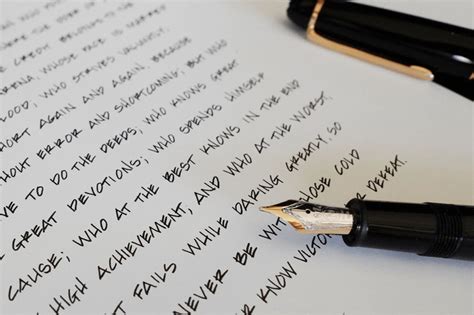 THE DOER OF
CREDIT BELONGS TO THE
ARENA, WHOSE FACE IS MARRED
LOOD, WHO STRIVES VALIANTLY,
HORT AGAIN AND AGAIN, BECAUSE
OUT ERROR AND SHORTCOMING; BUT WHO
VE TO DO THE DEEDS; WHO KNOWS GREAT
GREAT DEVOTIONS; WHO SPENDS HIMSELF
CAUSE; WHO AT THE BEST KNOWS IN THE END
HIGH ACHIEVEMENT, AND WHO AT THE WORST,
T FAILS WHILE DARING GREATLY, SO
NEVER BE WIT HOSE COLD
R KNOW VICTO R DEFEAT.